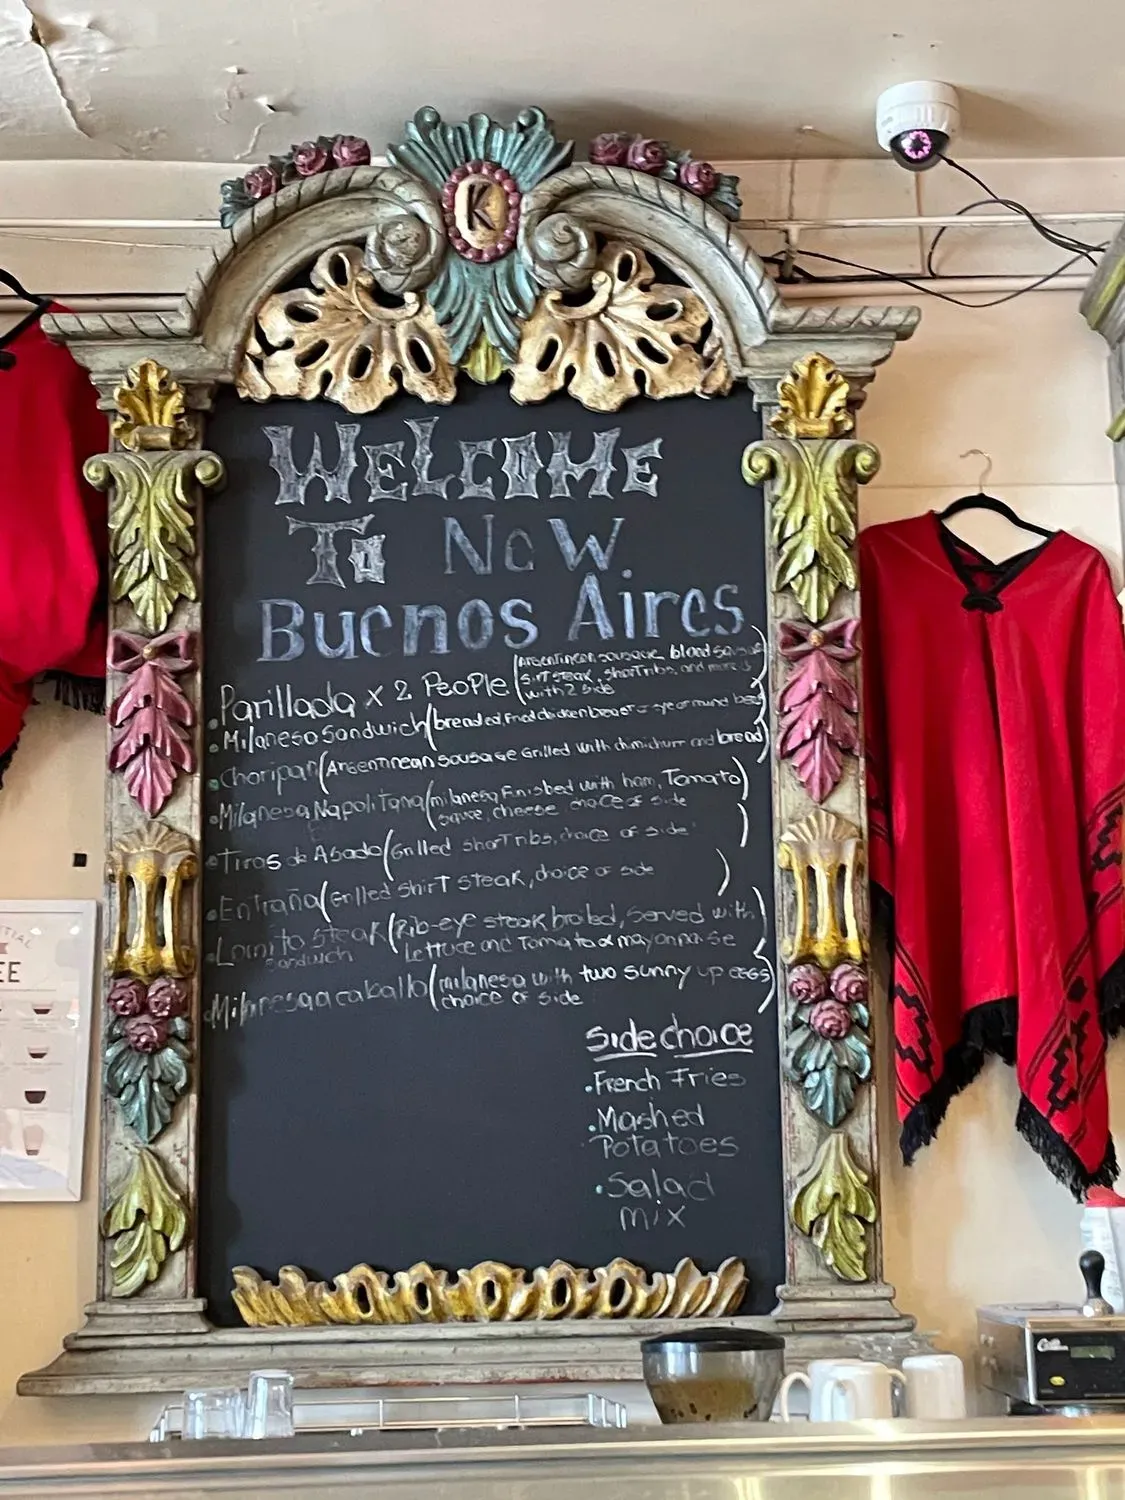 K
WELCOME
To New
Buenos Aires
• Parillada x 2 People (Argentinean sausage, blood sausage
Sirt steak, shortribs, and more is
with 2 side)
• Milanesa Sandwich (breaded fried chicken breast or eye round beef)
• Choripan (Argentinean sausage Grilled with chimichurr and bread)
• Milanesa Napolitana (milanesa finished with ham, Tomato
sauce, cheese choice of side)
• Tiras de Asado (Grilled shortribs, choice of side)
• Entraña (Grilled shirt steak, choice of side)
• Lomito steak (Rib-eye steak broiled, served with
sandwich Lettuce and Tomato a mayonnaise)
• Milanesa a caballo (milanesa with two sunny up eggs
choice of side)
Side choice
• French Fries
• Mashed
Potatoes
• Salad
mix